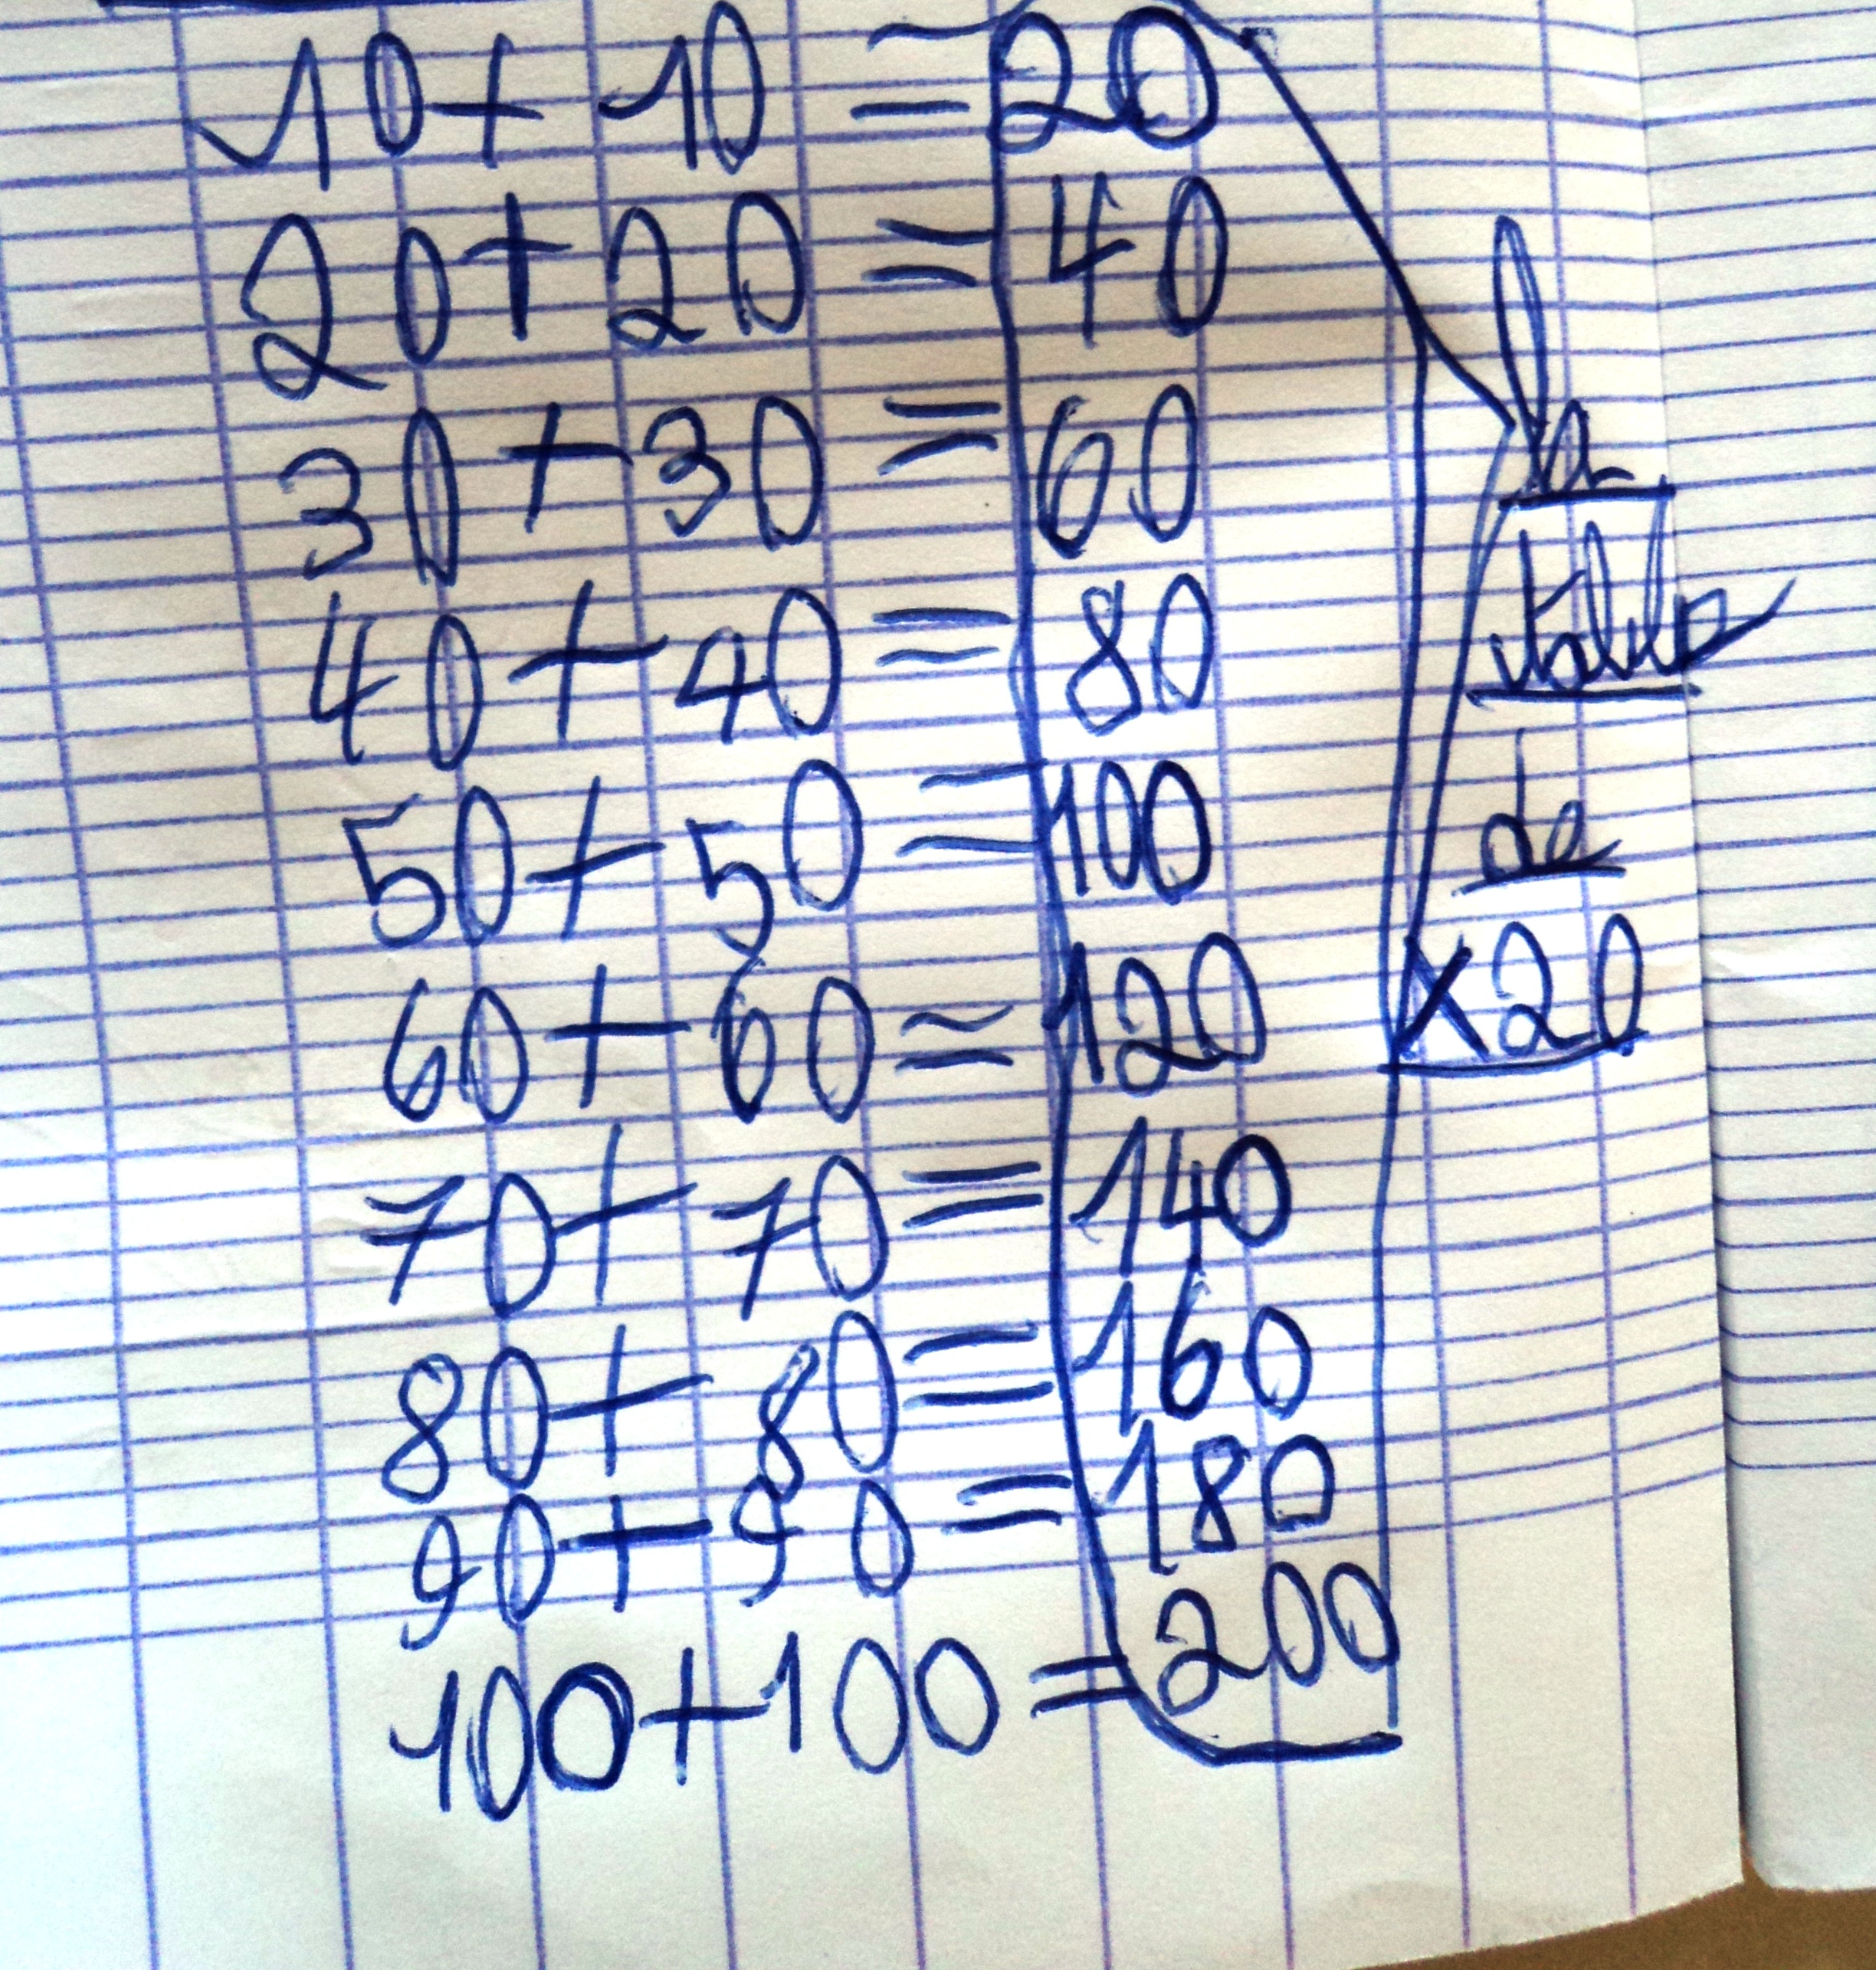 10 + 10 = 20
20 + 20 = 40
30 + 30 = 60
40 + 40 = 80
50 + 50 = 100
60 + 60 = 120
70 + 70 = 140
80 + 80 = 160
90 + 90 = 180
100 + 100 = 200
la
table
de
x20